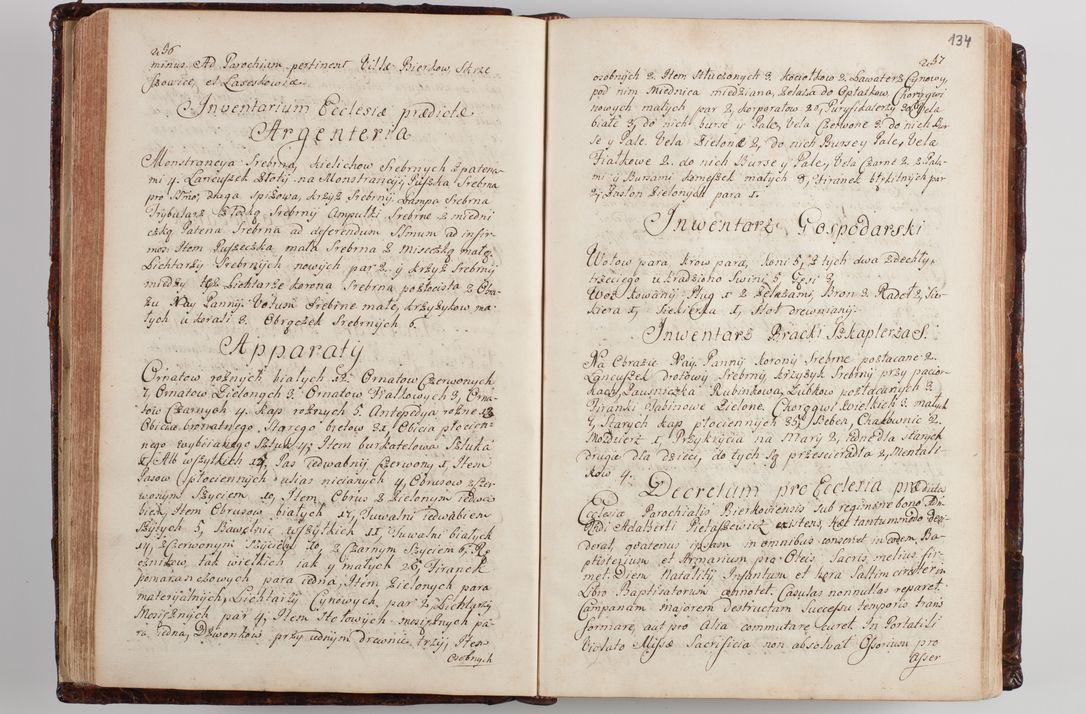 236
minus. Ad Parochiam pertinent Villæ Bierkow, Skrze
szowice, et Lazeskowiæ.
Inventarium Ecclesiæ prædictæ
Argenterÿa
Monstrancya Srebrna, kielichow Srebrnych z patena-
mi 4. Lancuszek Złotÿ na Monstrancÿi, Puszka Srebrna
pro SSmo, druga spizowa, krzyż Srebrnÿ, Lampa Srebrna
Trybularz z Łodką Srebrnÿ Ampułki Srebrne z miedni
czką Patena Srebrna ad deferendum SSmum ad infir-
mos. Item Puszeczka mała Srebrna z miseczką małą,
Lichtarzÿ Srebrnÿch nowych par 2. ÿ krzyż Srebrnÿ
miedzy Lichtarze korona Srebrna pozłocista z Obra-
zu Nay Pannÿ Votum Srebrne małe, krzyżykow ma-
łych u korali 3. Obrączek Srebrnych 6.
Apparatÿ
Ornatow rożnych białych 12. Ornatow Czerwonych
7, Ornatow Zielonych 3. Ornatow Fiałkowych 3, Orna-
tow Czarnych 4. kap rożnych 5. Antepedya rożne 13
Obicia Starego bretow 21, Obicia płocien-
nego wybijanego Sztuk 4, Item burkatelowa Sztuka
1, Alb wszÿtkich 14, Pas iedwabnÿ Czerwony 1, Item
Pasow Spłociennych alias nicianych 4, Obrusow z Czer-
wonÿm Szÿciem 10, Item, Obrus z Zielonÿm iedwa-
biem, Item Obrusow białych 17, Tuwalni iedwabiem
Szÿtych 5, Bawełnic wszÿtkich 11, Tuwalni białych
14, z Czerwonÿm Szÿciem 20, z Czarnym Szyciem 6, Rę-
cznikow, tak wielkich iak ÿ małych 26, Firanek
pomaranczowych para iedna, Item zielonych para
materÿalnÿch, Lichtarzÿ Cynowÿch, par 2, Lichtarzÿ
Mosiężnÿch par 4, Item Stołowych mosiężnych pa-
ra iedna, Dzwonkow przÿ iednÿm drzewnie trzÿ, Item
Osobnych
134
237
osobnÿch 2. Item stłuczonych 3. kociołkow 2. Lawaterz Cÿnowÿ,
pod nim Miednica miedziana, Zelaza do Opłatkow, Chorągwi
nowych małych par 2, korporałow 20, Puryfikaterzÿ 30, Vela
białe 3, do nich burse ÿ Pale, Vela Czerwone 2. do nich Bur
se ÿ Pale. Vela Zielone 2, do nich Burse ÿ Pale, Vela
Fiałkowe 2. do nich Burse ÿ Pale, Vela Czarne 2. z Pala-
mi ÿ Bursami kamÿszek małych 3, Firanek błękitnych par
2, Zasłon Zielonych para 1.
Inwentarz Gospodarski
Wołow para, krow para, koni 5, z tych dwa zdechły,
trzeciego ukradziono Swini 5, Gęsi 3.
Woz kowanÿ Pług 1 z Zelazami, Bron 3. Radeł 2, Sie-
kiera 1, Siekierka 1, Stoł drewnianÿ.
Inwentarz Bracki Szkaplerza S.
Na Obrazie Nay. Pannÿ korony Srebrne pozłacane 2.
Lancuszek drotowÿ Srebrnÿ krzyżÿk Srebrnÿ przy pacior-
kach, Zausznicka Rubinkowa, Lubkow pozłacanych 3.
Firanki Tabinowe Zielone. Chorągwi Wielkich 3. małych
7, Starych kap płociennych 35, Beben, Chałownic 2.
Mozdzierz 1, Przykrycia na Marÿ 2, iedne dla starych
drugie dla Dzieci, do tych są przescieradła 2, Mentali-
kow 4.
Decretum pro Ecclesia prædicta
Ecclesia Parochialis Bierkoviensis sub regimine bono
Rdi Adalberti Pełaszewicz existens, hoc tantummodo desi-
derat, quatenus ipsam in omnibus conservet in eodem, Ba-
ptisterium et Armarium pro Oleis Sacris, melius fir-
met. Diem Natalitÿ Infantum et hora Saltim circiter in
Libro Baptisatorum annotet. Casulas nonnullas reparet.
Campanam majorem destructam Successu temporis trans
formare, aut pro Alia commutare curet. In Portatili
violato Missæ Sacrificia non absolvat Ossorium pro
Asser